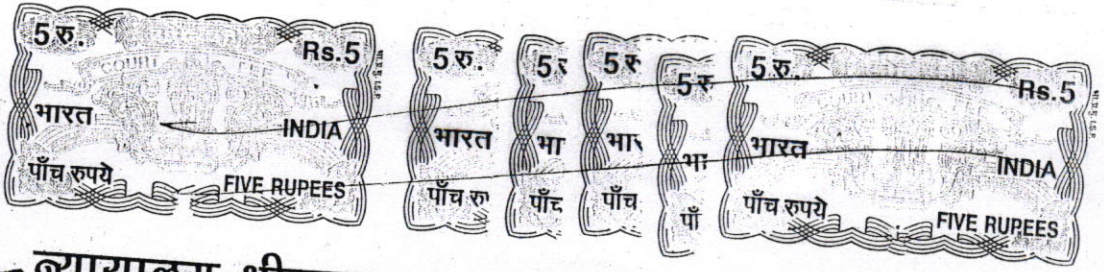 5 रु. Rs.5
COURT FEE
भारत INDIA
पाँच रुपये FIVE RUPEES
5 रु.
भारत
पाँच रु
5
भा
पाँच
5 रु
भार
पाँच
5 रु
भा
पाँ
5 रु. Rs.5
भारत INDIA
पाँच रुपये FIVE RUPEES
न्यायालय